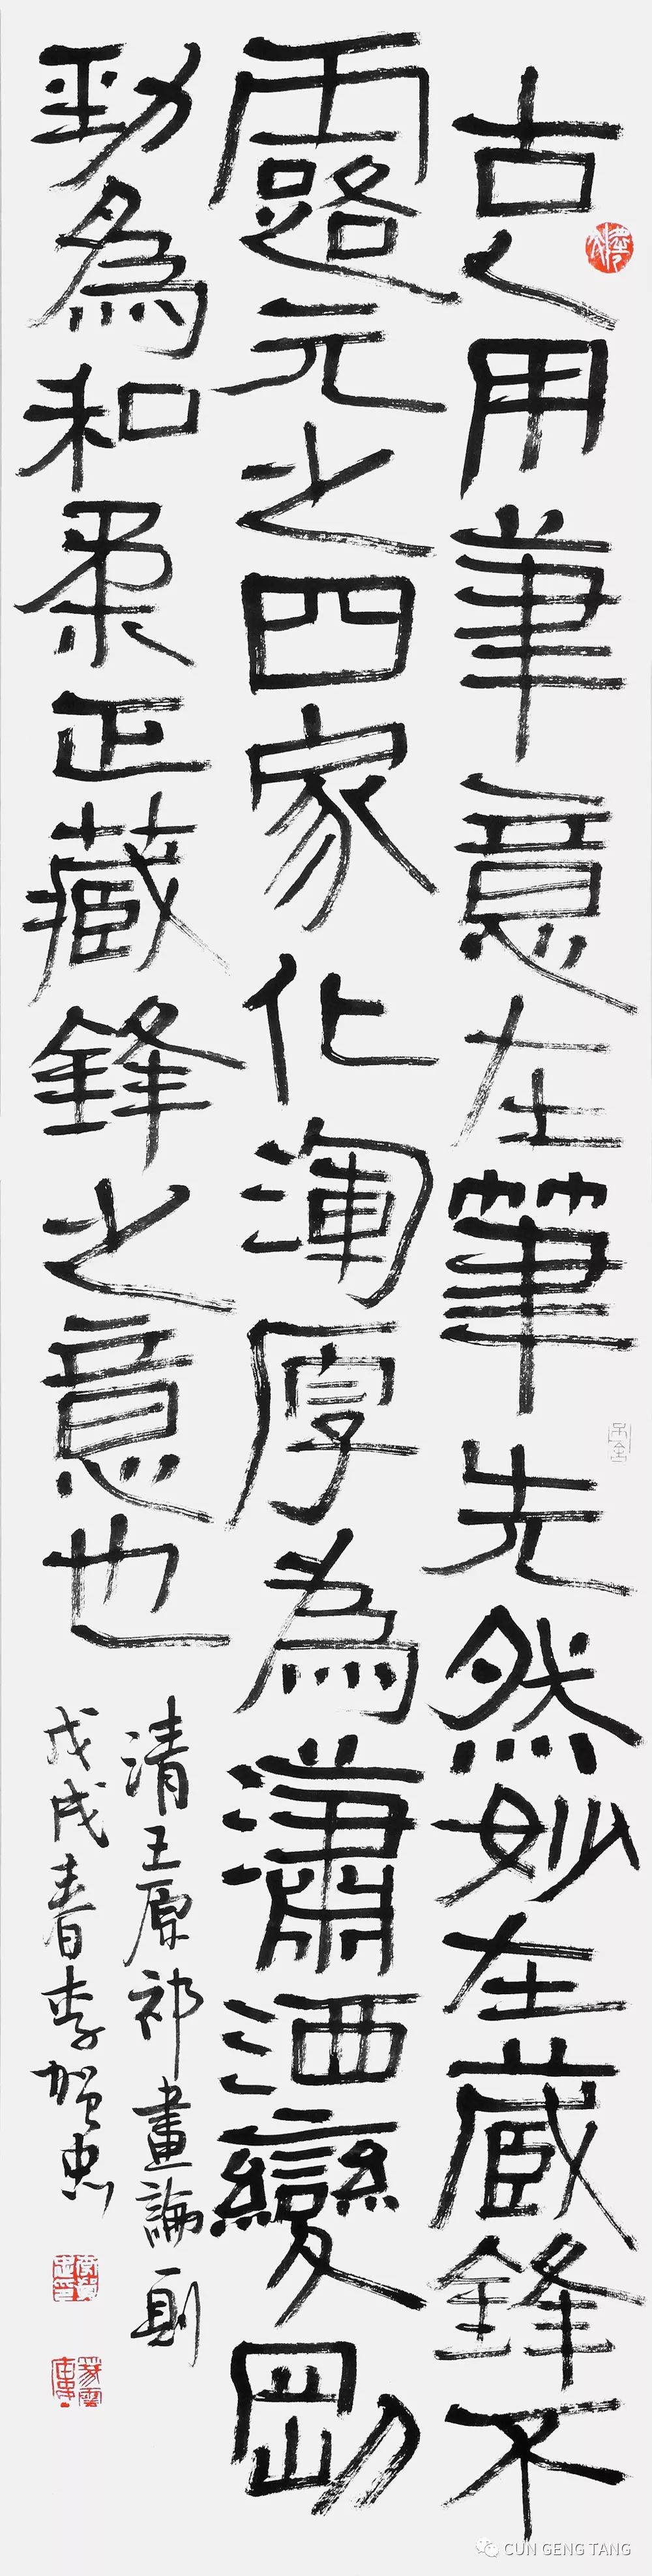 古人用筆意在筆先然妙在藏鋒不
露元之四家化渾厚為瀟洒變剛
勁為和柔正藏鋒之意也
清王原祁畫論一則
戊戌春李賀忠
CUN GENG TANG